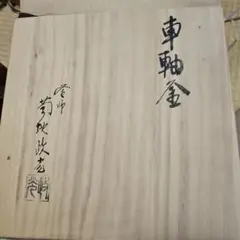 車軸釜
釜師
菊地政光